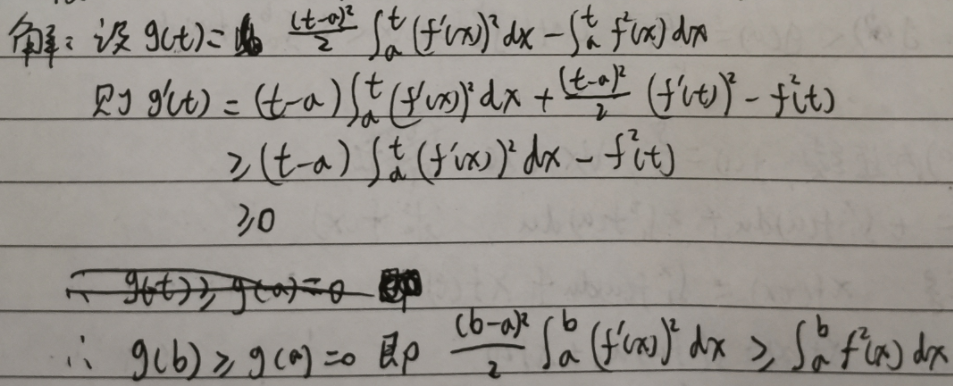 解：设 g(t)= (t-a)²/2 ∫ₐᵗ (f'(x))² dx - ∫ₐᵗ f²(x) dx
则 g'(t) = (t-a) ∫ₐᵗ (f'(x))² dx + (t-a)²/2 (f'(t))² - f²(t)
≥ (t-a) ∫ₐᵗ (f'(x))² dx - f²(t)
≥0
∴ g(t) ≥ g(a)=0
∴ g(b) ≥ g(a)=0 即 (b-a)²/2 ∫ₐᵇ (f'(x))² dx ≥ ∫ₐᵇ f²(x) dx